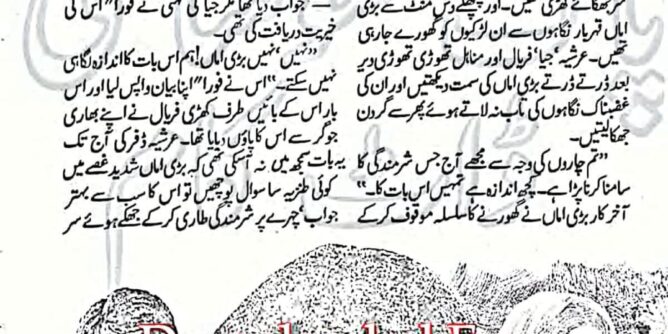 سر جھکائے کھڑی تھیں۔ اور پچھلے دس منٹ سے بڑی
اماں قہربار نگاہوں سے ان لڑکیوں کو گھورے جا رہی
تھیں۔ عرشیہ، جیا، فریال اور مناہل تھوڑی تھوڑی دیر
بعد ڈرتے ڈرتے بڑی اماں کی سمت دیکھتیں اور ان کی
غضبناک نگاہوں کی تاب نہ لاتے ہوئے پھر سے گردن
جھکا لیتیں۔
”تم چاروں کی وجہ سے مجھے آج جس شرمندگی کا
سامنا کرنا پڑا ہے۔ کچھ اندازہ ہے تمہیں اس بات کا۔“
آخر کار بڑی اماں نے گھورنے کا سلسلہ موقوف کر کے
جواب دیا تھا مگر جیا کی کہنی نے فورا" اس کی
خیریت دریافت کی تھی۔
”نہیں، نہیں بڑی اماں! ہم اس بات کا اندازہ لگا ہی
نہیں سکتے۔“ اس نے فورا" اپنا بیان واپس لیا اور اس
بار اس کے بائیں طرف کھڑی فریال نے اپنے بھاری
جوگر سے اس کا پاؤں دبایا تھا۔ عرشیہ ڈفر کی آج تک
یہ بات سمجھ میں نہ آسکی تھی کہ بڑی اماں شدید غصے میں
کوئی طنزیہ سا سوال پوچھیں تو اس کا سب سے بہتر
جواب، چہرے پر شرمندگی طاری کر کے جھکے ہوئے سر